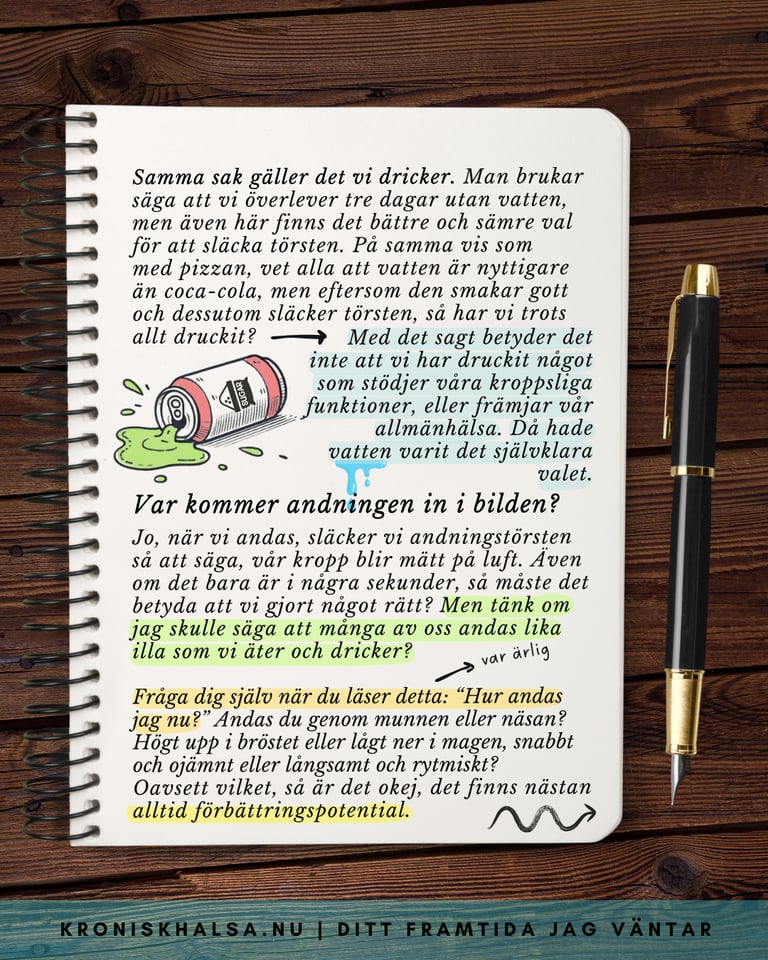 Samma sak gäller det vi dricker. Man brukar
säga att vi överlever tre dagar utan vatten,
men även här finns det bättre och sämre val
för att släcka törsten. På samma vis som
med pizzan, vet alla att vatten är nyttigare
än coca-cola, men eftersom den smakar gott
och dessutom släcker törsten, så har vi trots
allt druckit?
Med det sagt betyder det
inte att vi har druckit något
som stödjer våra kroppsliga
funktioner, eller främjar vår
allmänhälsa. Då hade
vatten varit det självklara
valet.
SUGAR
Var kommer andningen in i bilden?
Jo, när vi andas, släcker vi andningstörsten
så att säga, vår kropp blir mätt på luft. Även
om det bara är i några sekunder, så måste det
betyda att vi gjort något rätt? Men tänk om
jag skulle säga att många av oss andas lika
illa som vi äter och dricker?
var ärlig
Fråga dig själv när du läser detta: “Hur andas
jag nu?” Andas du genom munnen eller näsan?
Högt upp i bröstet eller lågt ner i magen, snabbt
och ojämnt eller långsamt och rytmiskt?
Oavsett vilket, så är det okej, det finns nästan
alltid förbättringspotential.
KRONISKHALSA.NU | DITT FRAMTIDA JAG VÄNTAR